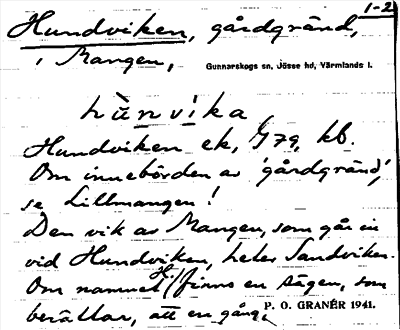 1-2
Hundviken, gårdgränd,
i Mangen,
Gunnarskogs sn, Jösse hd, Värmlands l.
hùnvìka
Hundviken ek, G 79, kb.
Om innebörden av 'gårdgränd',
se Lillmangen!
Den vik av Mangen, som går in
vid Hundviken, heter Sandviken.
Om namnet H. finns en sägen, som
berättar, att en gång
P. O. GRANÉR 1941.